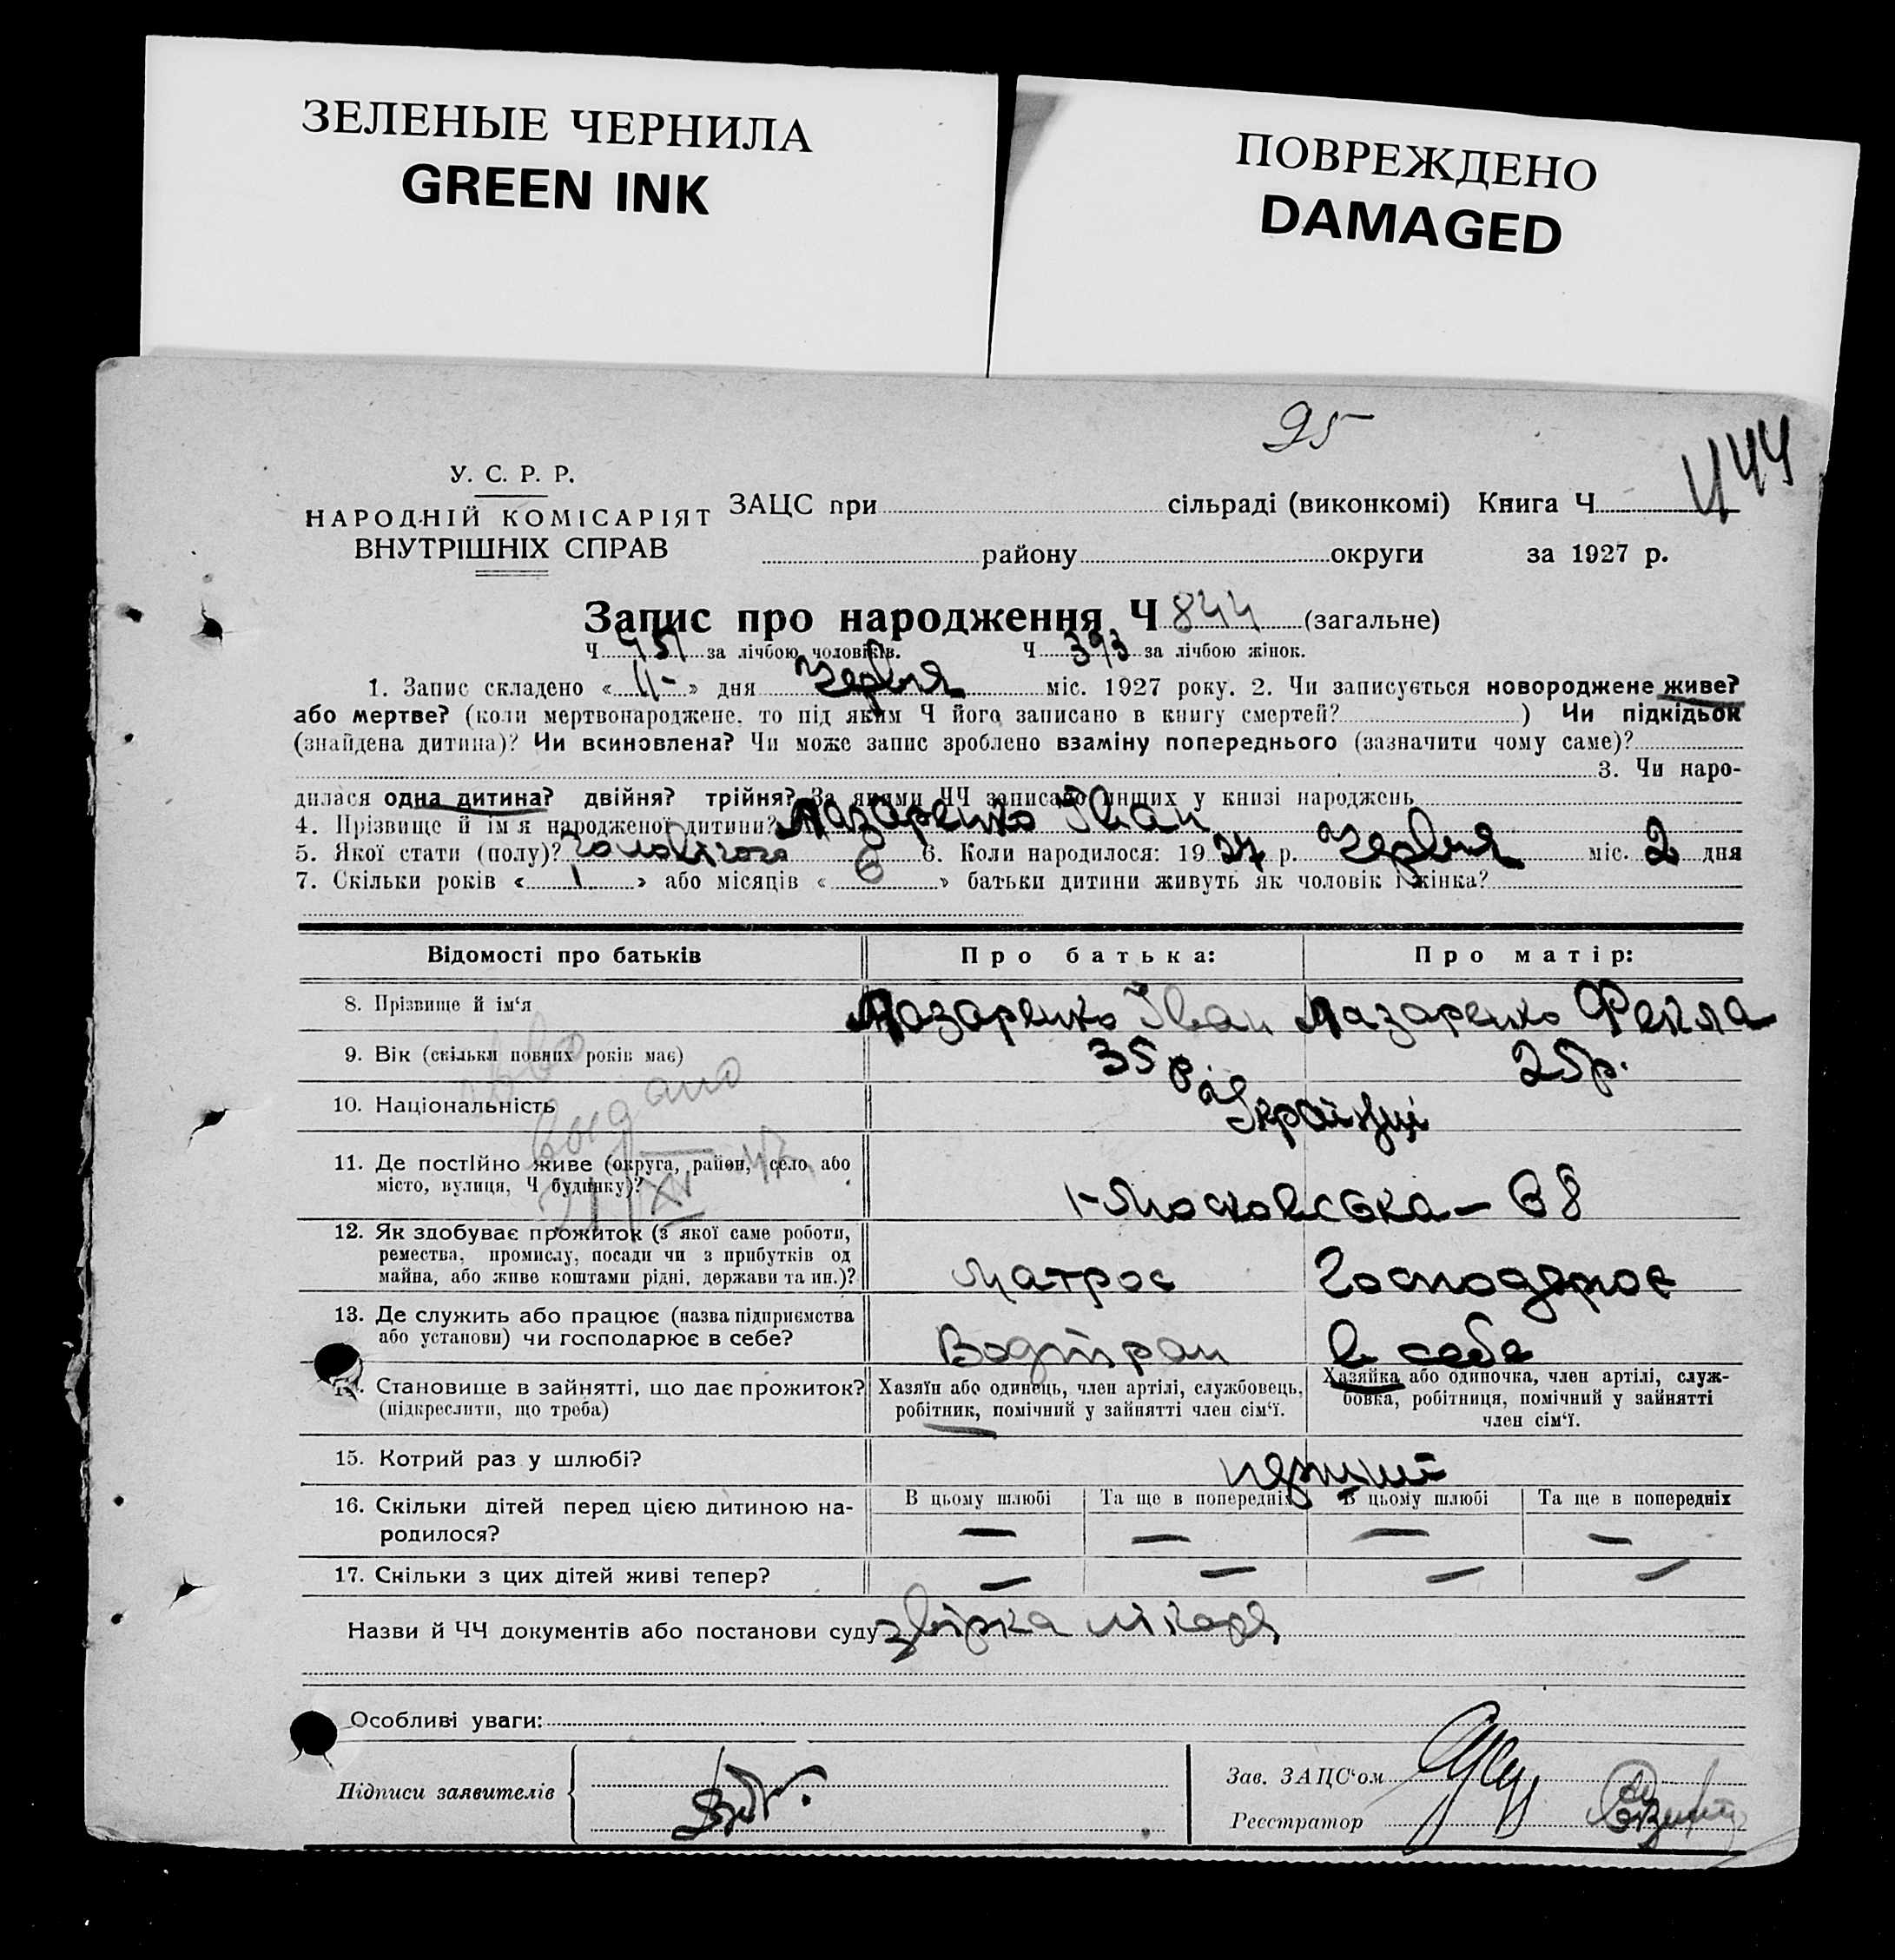 ЗЕЛЕНЫЕ ЧЕРНИЛА
GREEN INK
ПОВРЕЖДЕНО
DAMAGED
95
У. С. Р. Р.
НАРОДНІЙ КОМІСАРІЯТ
ВНУТРІШНІХ СПРАВ
ЗАЦС при сільраді (виконкомі) Книга Ч
району округи за 1927 р.
Запис про народження Ч 844 (загальне)
Ч 451 за лічбою чоловіків. Ч 393 за лічбою жінок.
1. Запис складено « 11- » дня Червня міс. 1927 року. 2. Чи записується новороджене живе?
або мертве? (коли мертвонароджене, то під яким Ч його записано в книгу смертей? ) Чи підкідьок
(знайдена дитина)? Чи всиновлена? Чи може запис зроблено взаміну попереднього (зазначити чому саме)?
3. Чи наро-
дилася одна дитина? двійня? трійня? За якими ЧЧ записано инших у книзі народжень
4. Прізвище й ім'я народженої дитини? Лазаренко Іван
5. Якої стати (полу)? Чоловічого 6. Коли народилося: 1927 р. Червня міс. 2 дня
7. Скільки років « 1 » або місяців « 6 » батьки дитини живуть як чоловік і жінка?
Відомості про батьків
Про батька:
Про матір:
8. Прізвище й ім'я
Лазаренко Іван
Лазаренко Фекла
9. Вік (скільки повних років має)
35 р.
25 р.
10. Національність
Українці
11. Де постійно живе (округа, район, село або
місто, вулиця, Ч будинку)?
1-Московська - 68
12. Як здобуває прожиток (з якої саме роботи,
ремества, промислу, посади чи з прибутків од
майна, або живе коштами рідні, держави та ин.)?
Матрос
Господарює
13. Де служить або працює (назва підприємства
або установи) чи господарює в себе?
в себе
14. Становище в зайнятті, що дає прожиток?
(підкреслити, що треба)
Хазяїн або одинець, член артілі, службовець,
робітник, помічний у зайнятті член сім'ї.
Хазяйка або одиночка, член артілі, служ-
бовка, робітниця, помічний у зайнятті
член сім'ї.
15. Котрий раз у шлюбі?
перший
16. Скільки дітей перед цією дитиною на-
родилося?
В цьому шлюбі
Та ще в попередніх
В цьому шлюбі
Та ще в попередніх
— — — —
17. Скільки з цих дітей живі тепер?
— — — —
Назви й ЧЧ документів або постанови суду звірка лікаря
Особливі уваги:
Підписи заявителів
Зав. ЗАЦС'ом
Реєстратор